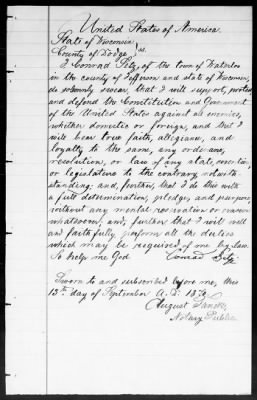 United States of America.
State of Wisconsin
County of Dodge } ss.
I Conrad of the town of Waterloo
in the county of Jefferson and state of Wisconsin,
do solemnly swear, that I will support, protect
and defend the Constitution and Government
of the United States against all enemies,
whether domestic or foreign, and that I
will bear true faith, allegiance, and
loyalty to the same, any ordinance,
resolution, or law of any state, convention,
or legislature to the contrary notwith-
standing; and, further, that I do this with
a full determination, pledge, and purpose,
without any mental reservation or evasion
whatsoever; and, further, that I will well
and faithfully perform all the duties
which may be required of me by law.
So help me God
Conrad
Sworn to and subscribed before me, this
13th day of September A.D.
August
Notary Public